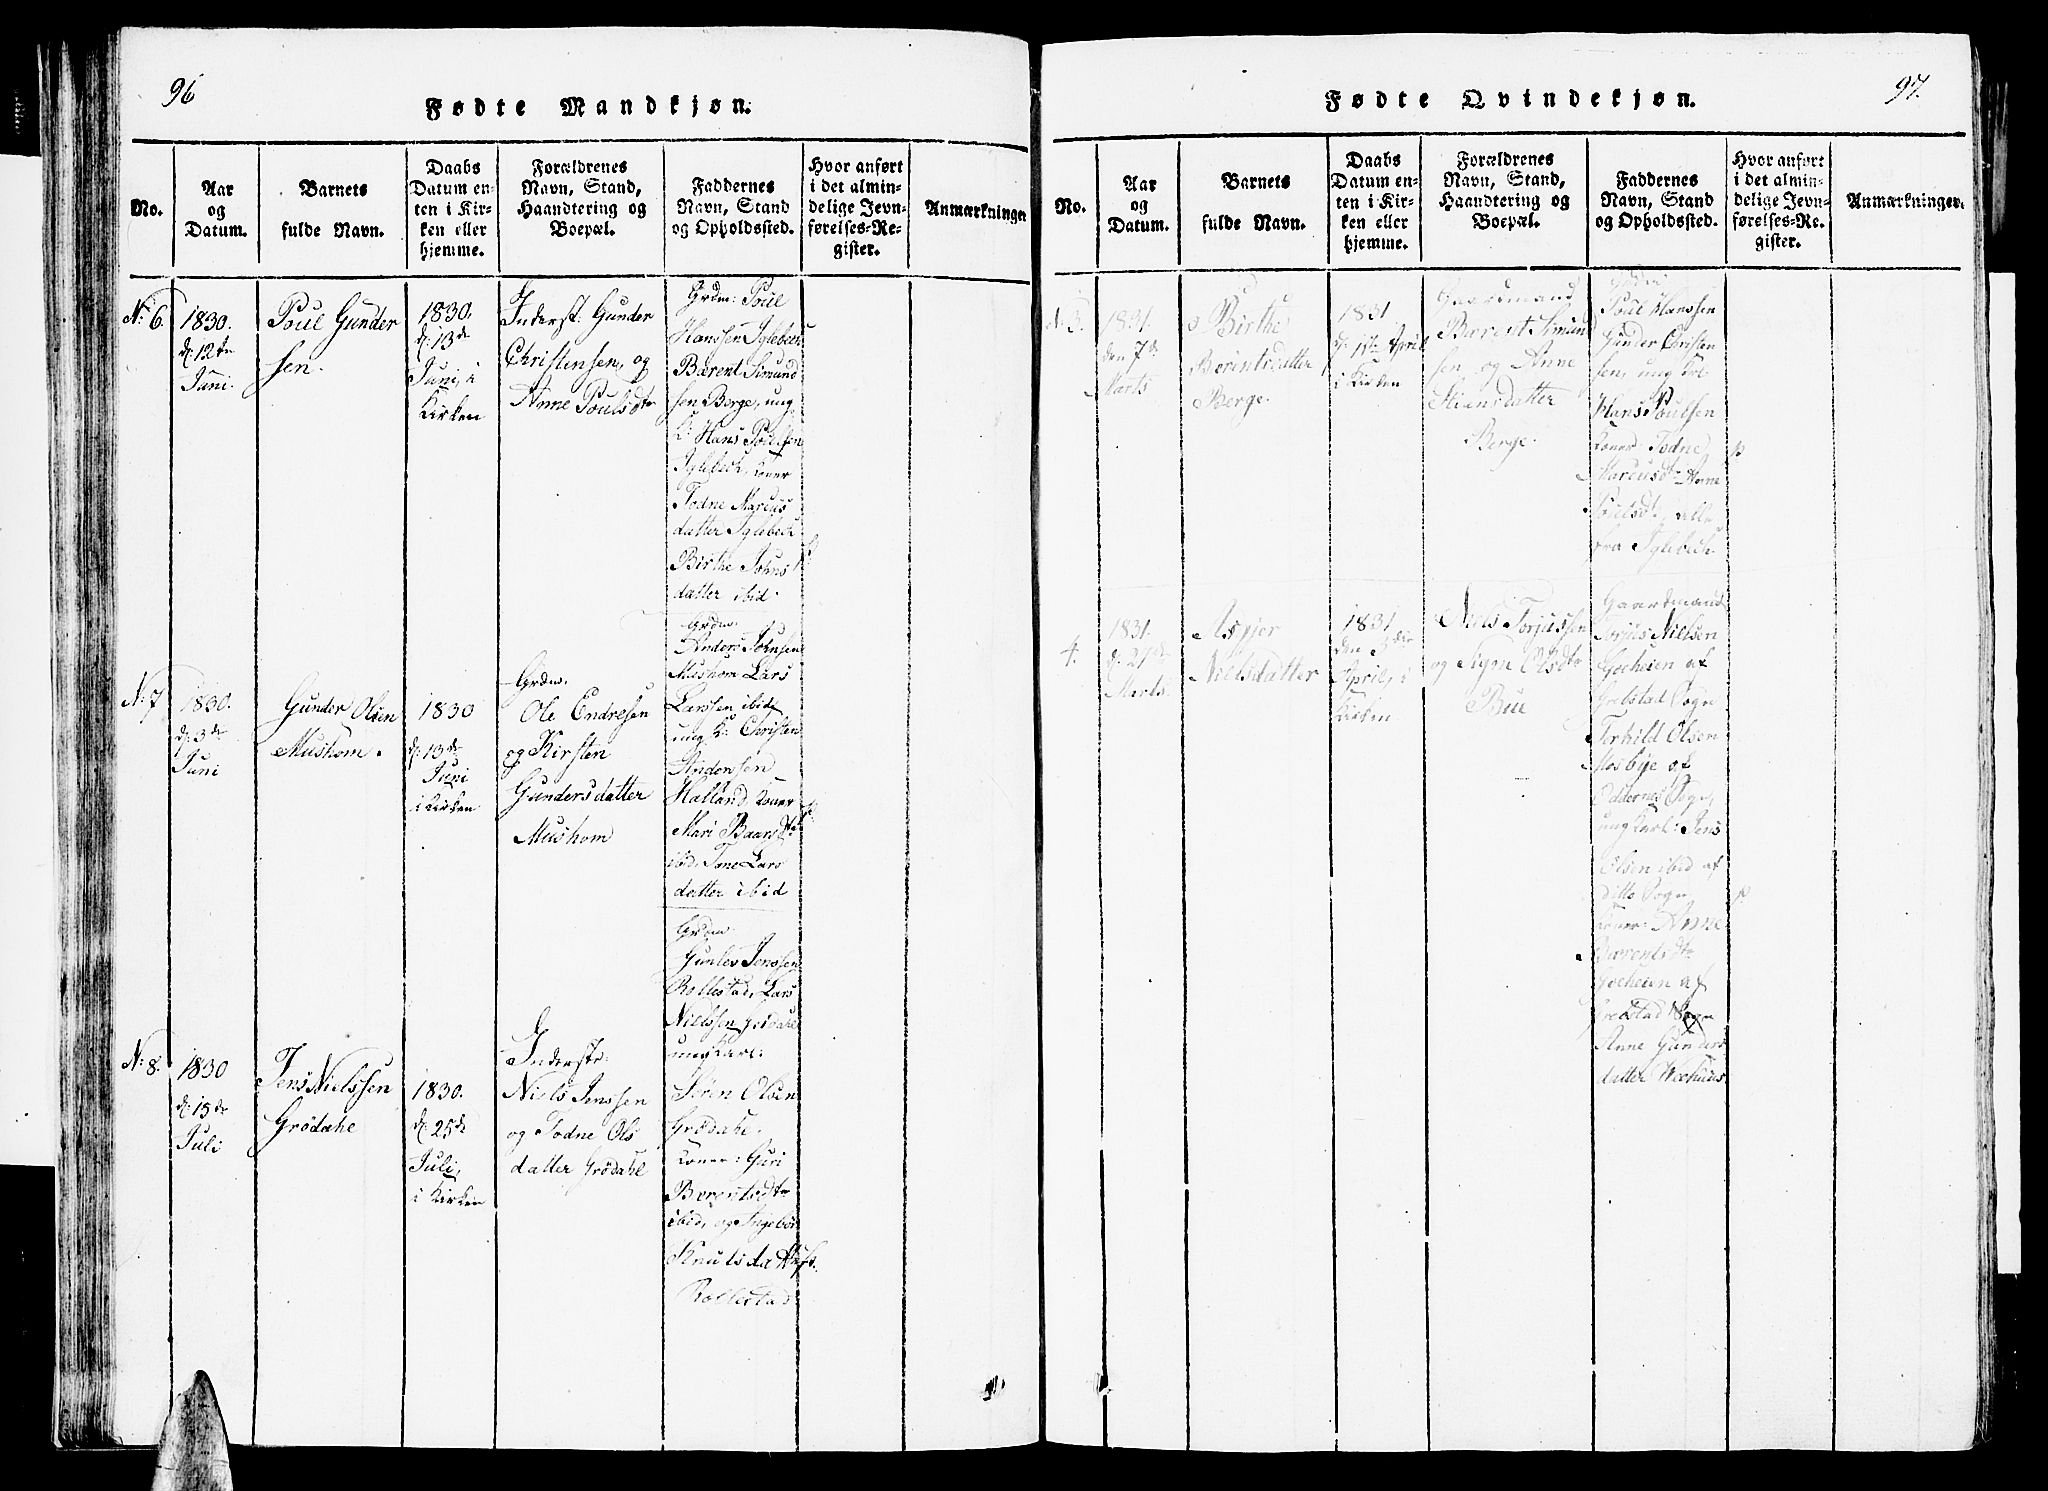 96
Fødte Mandkjøn.
No.
Aar
og
Datum.
Barnets
fulde Navn.
Daabs
Datum en-
ten i Kir-
ken eller
hjemme.
Forældrenes
Navn, Stand,
Haandtering og
Boepæl.
Faddernes
Navn, Stand
og Opholdssted.
Hvor anført
i det almin-
delige Jevn-
førelses-Re-
gister.
Anmærkninger
N: 6.
1830.
d: 12te
Juni.
Poul Gunder
sen.
1830.
d: 13de
Juni, i
Kirken
Inderst: Gunder
Christensen, og
Anne Poulsdtr
Grdm: Poul
Hanssen Iglebech
Bærent Simund
sen Berge, ung
K: Hans Poulsen
Iglebech. Koner
Todne Marcus
datter Iglebech
Birthe Johns
datter ibid.
N: 7
1830.
d: 3de
Juni
Gunder Olsen
Mushom.
1830
d: 13de
Juni
i Kirken
Grdm.
Ole Endresen
og Kirsten
Gundersdatter
Mushom
Grdm.
Anders Johnsen
Mushom Lars
Larssen ibid,
ung K: Christen
Andersen
Halland Koner
Mari Baarsdtr
ibid, Tone Lars
datter ibid
N: 8.
1830
d: 15de
Juli
Jens Nielssen
Grödahe
1830.
d: 25de
Juli,
i Kirken
Inderstr:
Niels Jenssen
og Todne Ols
datter Grödahl
Grdm.
Gunlev Jenssen
Rollestad, Lars
Nielssen Grödahl
ung Karl:
Sören Olsen
Grödahl.
Koner: Guri
Bærentsdtr
ibid, og Ingebör
Knutsdatter
Rollestad
97.
Fødte Qvindekjøn.
No.
Aar
og
Datum.
Barnets
fulde Navn.
Daabs
Datum en-
ten i Kir-
ken eller
hjemme.
Forældrenes
Navn, Stand,
Haandtering og
Boepæl.
Faddernes
Navn, Stand
og Opholdssted.
Hvor anført
i det almin-
delige Jevn-
førelses-Re-
gister.
Anmærkninger.
N. 3.
1831.
den 7de
Marts
Birthe
Berentsdatter
Berge.
1831
April
i Kirken
Gaardmand
Bærent Simund
sen og Anne
Stiansdatter
Berge.
Grdm:
Poul Hanssen
Gunder Christen
sen, ung
Hans Poulsen
Koner Todne
Marcusdtr Anne
Poulsdtr, alle
fra Iglebech
4.
1831.
d: 27de
Marts.
Aspjer
Nielsdatter
1831
den 3die
April, i
Kirken
Niels Torjussen
og Sigen Olsdtr
Bue
Gaardmand
Torjus Nielsen
Gocheien af
Grebstad Sogn
Torkild Olsen
Mosbye af
Oddernes Sogn,
ung Karl: Jens
Olsen ibid af
ditto Sogn
Koner: Anne
Bærentsdtr
Gocheien af
Grebstad Sogn
Anne Gunders
datter Weehuus